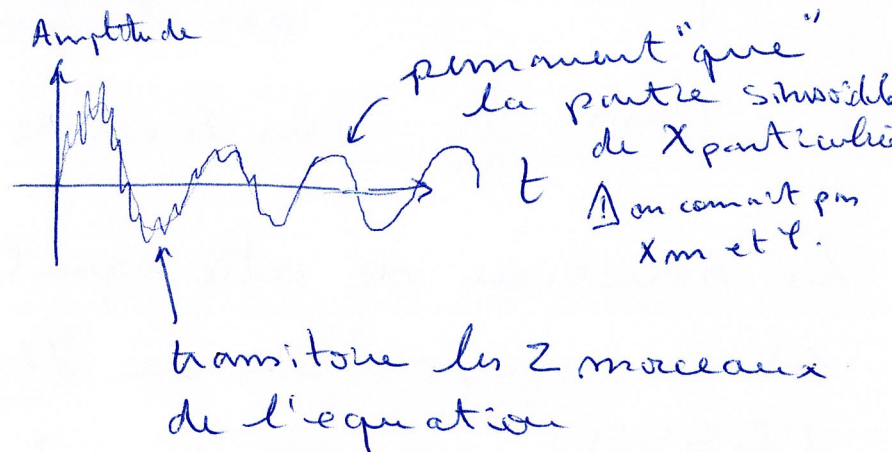 Amplitude
permanent "que"
la partie sinusoïdale
de X particulière
t
⚠ on connait pas
Xm et φ.
transitoire les 2 morceaux
de l'equation